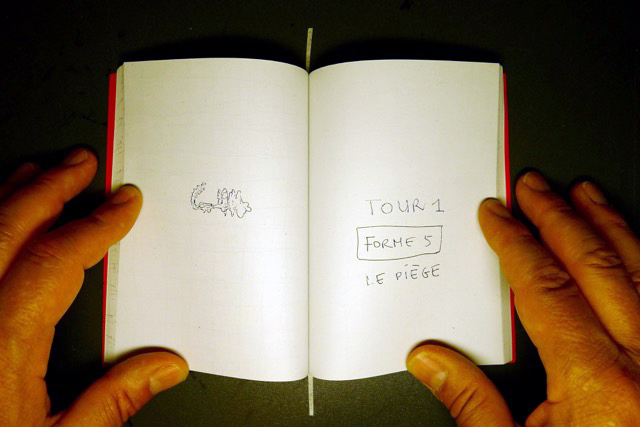 TOUR 1
FORME 5
LE PIÈGE